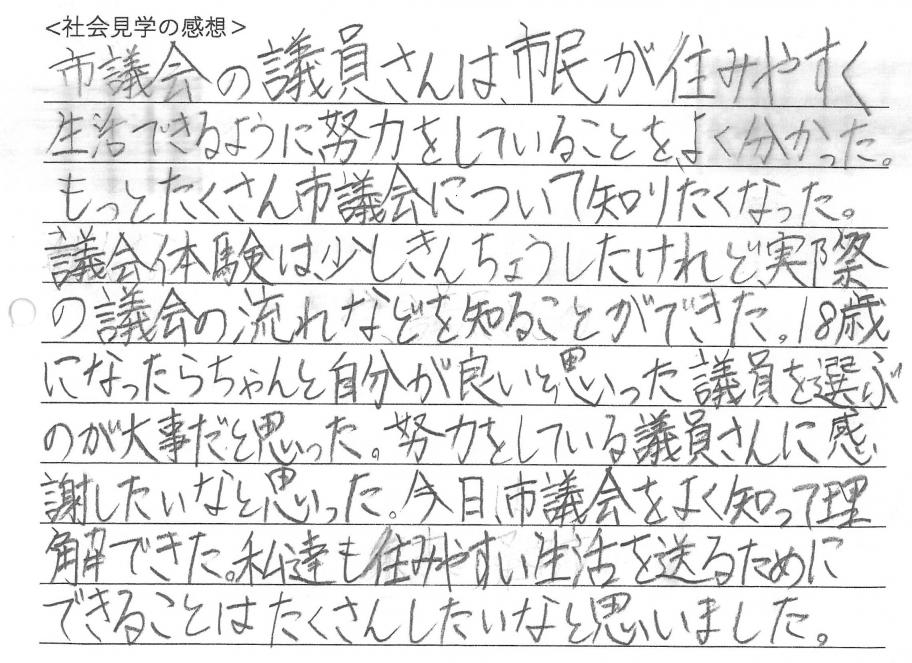 <社会見学の感想>
市議会の議員さんは、市民が住みやすく
生活できるように努力をしていることを、よく分かった。
もっとたくさん市議会について知りたくなった。
議会体験は、少しきんちょうしたけれど、実際
の議会の流れなどを知ることができた。18歳
になったらちゃんと自分が良いと思った議員を選ぶ
のが大事だと思った。努力をしている議員さんに感
謝したいなと思った。今日、市議会をよく知って理
解できた。私達も住みやすい生活を送るために
できることはたくさんしたいなと思いました。